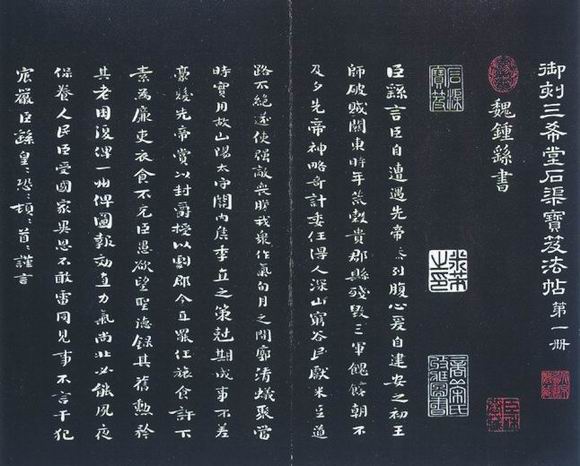 御刻三希堂石渠寶笈法帖第一冊
魏鍾繇書
石渠寶笈
臣繇言臣自遭遇先帝忝列腹心爰自建安之初王
師破賊關東時年荒穀貴郡縣殘毀三軍餽饟朝不
及夕先帝神略奇計委任得人深山窮谷民獻米豆道
路不絕遂使強敵喪膽我衆作氣旬月之間廓清蟻聚當
時實用故山陽太守關內侯季直之策尅期成事不差
豪髮先帝賞以封爵授以劇郡今直罷任旅食許下
素為廉吏衣食不充臣愚欲望聖德錄其舊勳矜
其老困復俾一州俾圖報効直力氣尚壯必能夙夜
保養人民臣受國家異恩不敢雷同見事不言干犯
宸嚴臣繇皇〻恐〻頓〻首〻謹言